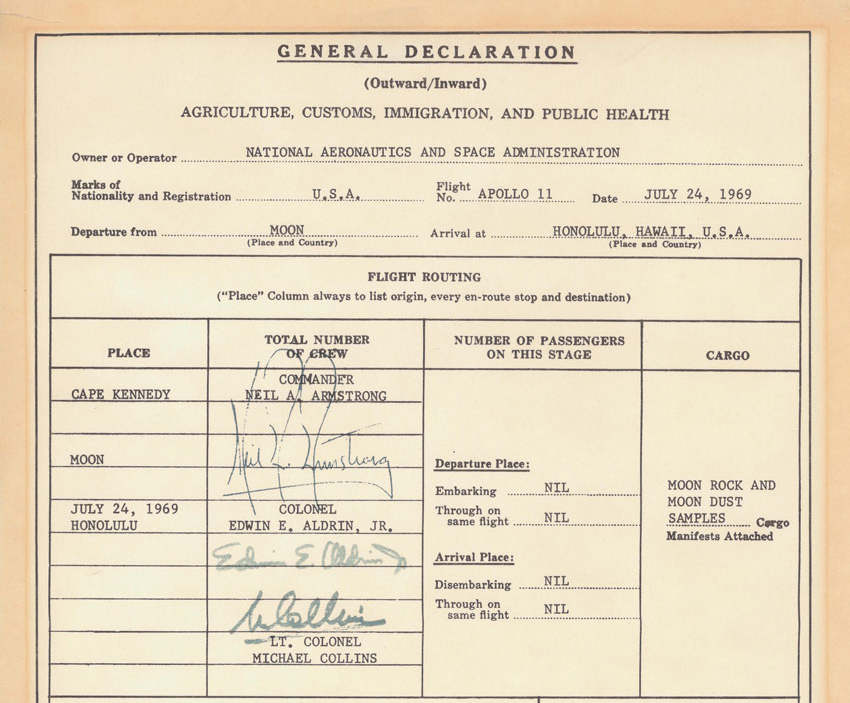 GENERAL DECLARATION
(Outward/Inward)
AGRICULTURE, CUSTOMS, IMMIGRATION, AND PUBLIC HEALTH
Owner or Operator NATIONAL AERONAUTICS AND SPACE ADMINISTRATION
Marks of
Nationality and Registration U.S.A. Flight
No. APOLLO 11 Date JULY 24, 1969
Departure from MOON Arrival at HONOLULU, HAWAII, U.S.A.
(Place and Country) (Place and Country)
FLIGHT ROUTING
("Place" Column always to list origin, every en-route stop and destination)
PLACE
TOTAL NUMBER
OF CREW
NUMBER OF PASSENGERS
ON THIS STAGE
CARGO
CAPE KENNEDY
MOON
JULY 24, 1969
HONOLULU
COMMANDER
NEIL A. ARMSTRONG
Neil A. Armstrong
COLONEL
EDWIN E. ALDRIN, JR.
Edwin E. Aldrin Jr
M Collins
LT. COLONEL
MICHAEL COLLINS
Departure Place:
Embarking NIL
Through on
same flight NIL
Arrival Place:
Disembarking NIL
Through on
same flight NIL
MOON ROCK AND
MOON DUST
SAMPLES Cargo
Manifests Attached